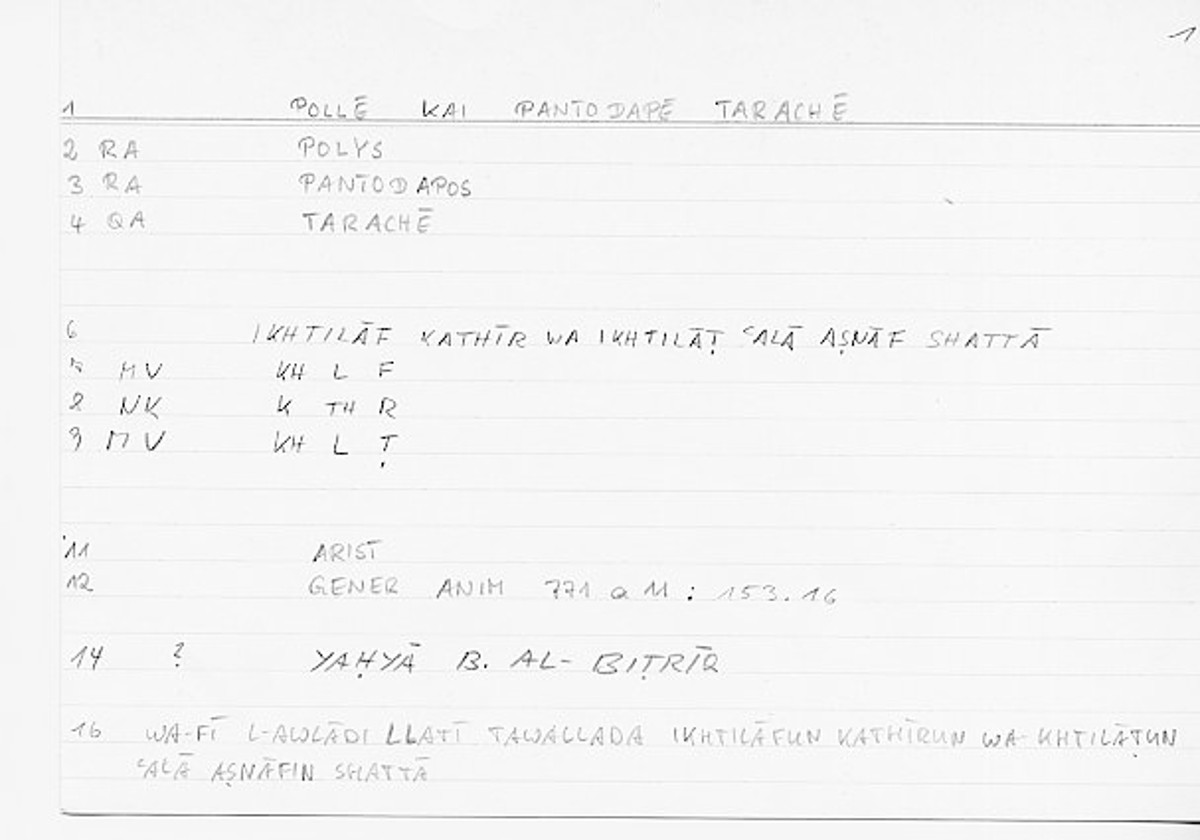 1
1 POLLĒ KAI PANTODAPĒ TARACHĒ
2 RA POLYS
3 RA PANTODAPOS
4 QA TARACHĒ
6 IKHTILĀF KATHĪR WA IKHTILĀṬ ʿALĀ AṢNĀF SHATTĀ
7 MV KH L F
8 NK K TH R
9 MV KH L Ṭ
11 ARIST
12 GENER ANIM 771 a 11 : 153.16
14 ? YAḤYĀ B. AL-BIṬRĪQ
16 WA-FĪ L-AWLĀDI LLATĪ TAWALLADA IKHTILĀFUN KATHĪRUN WA-KHTILĀṬUN
ʿALĀ AṢNĀFIN SHATTĀ